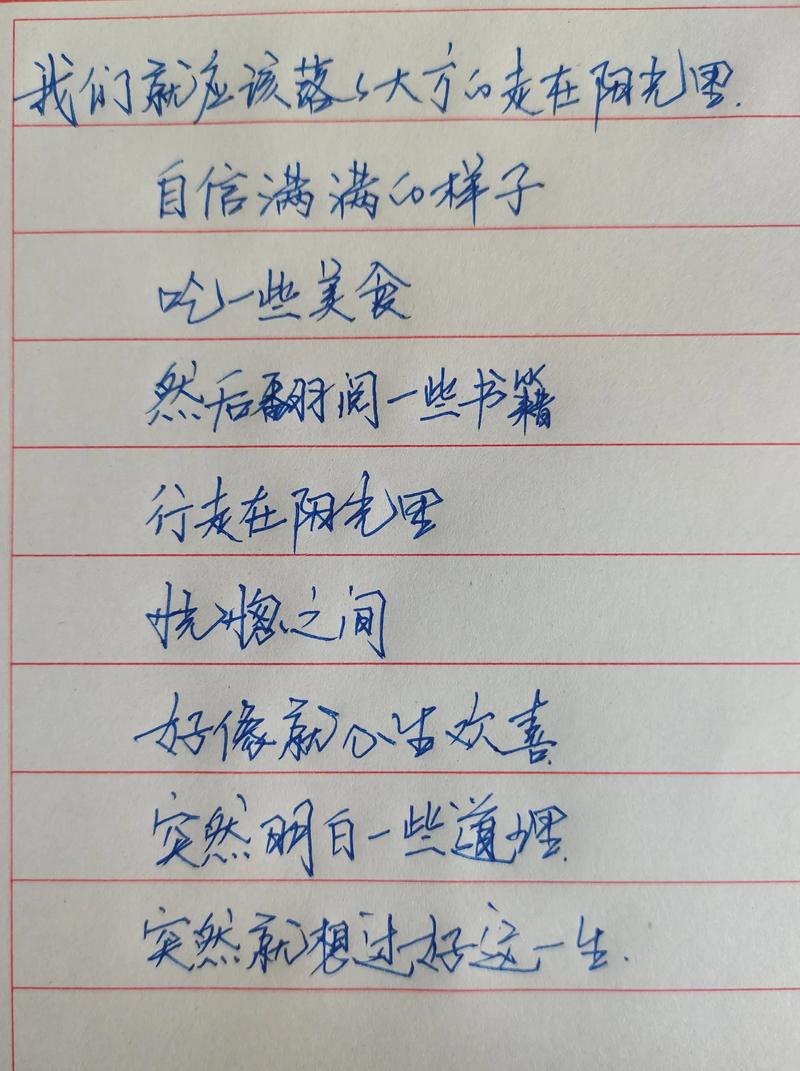 我们就应该落落大方的走在阳光里.
自信满满的样子
吃一些美食
然后翻阅一些书籍
行走在阳光里
恍惚之间
好像就心生欢喜
突然明白一些道理.
突然就想过好这一生.